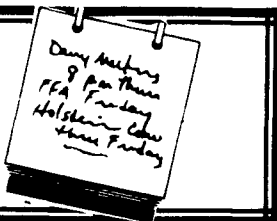 Dairy Meeting
8 pm Thurs
FFA Friday
Holstein Cow
thru Friday